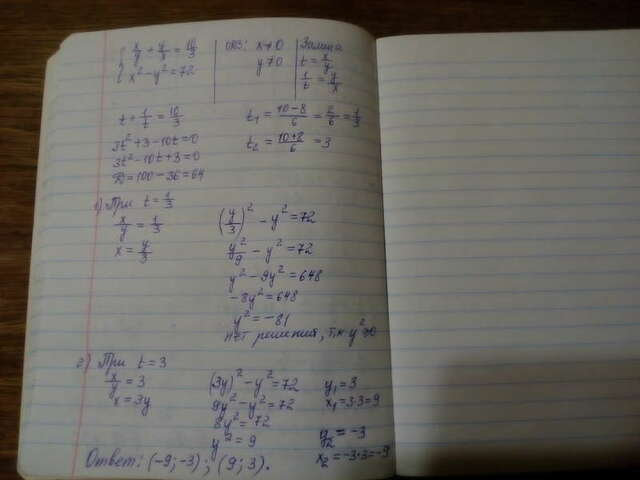 { x/y + y/x = 10/3
x² - y² = 72
ОДЗ: x≠0
y≠0
Замена
t = x/y
1/t = y/x
t + 1/t = 10/3
3t² + 3 - 10t = 0
3t² - 10t + 3 = 0
D = 100 - 36 = 64
t₁ = (10 - 8)/6 = 2/6 = 1/3
t₂ = (10 + 8)/6 = 3
1) При t = 1/3
x/y = 1/3
x = y/3
(y/3)² - y² = 72
y²/9 - y² = 72
y² - 9y² = 648
-8y² = 648
y² = -81
нет решений, т.к y²≥0
2) При t = 3
x/y = 3
x = 3y
(3y)² - y² = 72
9y² - y² = 72
8y² = 72
y² = 9
y₁ = 3
x₁ = 3·3 = 9
y₂ = -3
x₂ = -3·3 = -9
Ответ: (-9; -3); (9; 3).